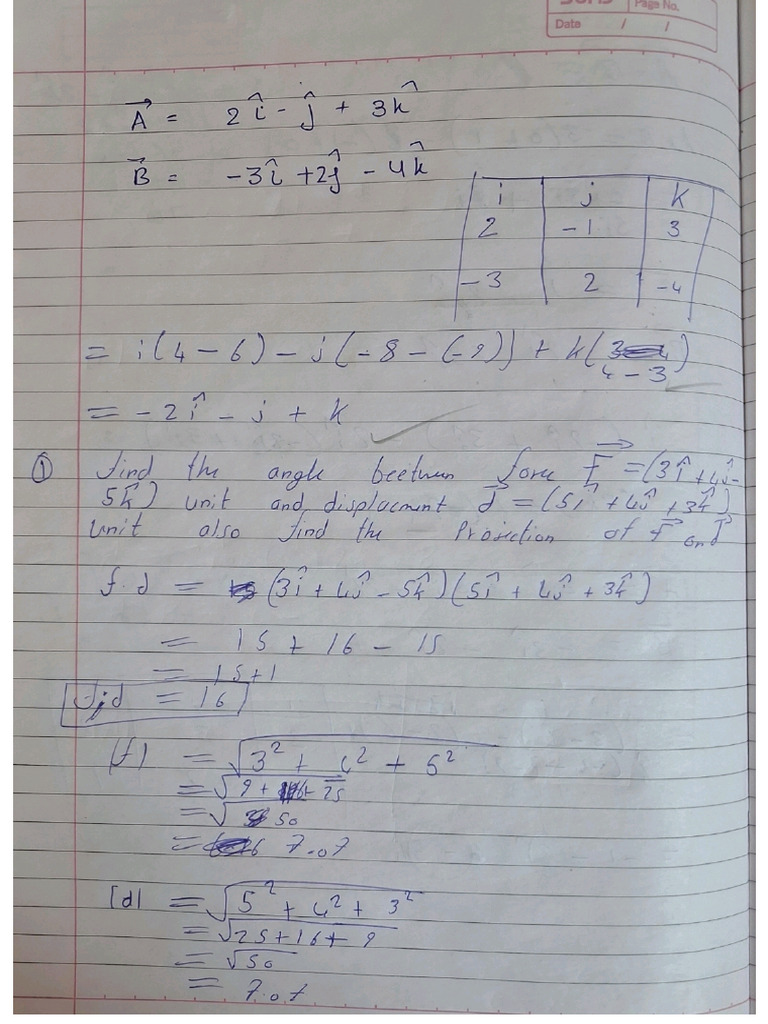 Page No.
Date / /
A = 2î - ĵ + 3k̂
B = -3î + 2ĵ - 4k̂
i j k
2 -1 3
-3 2 -4
= i(4-6) - j(-8-(-9)) + k(
4-3)
= -2î - j + k
① find the angle beetwen force F = (3î + 4ĵ -
5k̂) unit and displacment d = (5î + 4ĵ + 3k̂)
unit also find the Projection of F on d
f.d = (3î + 4ĵ - 5k̂)(5î + 4ĵ + 3k̂)
= 15 + 16 - 15
= 15+1
f.d = 16
|f| = √3² + 4² + 5²
= √9 + 16 + 25
= √50
= 7.07
|d| = √5² + 4² + 3²
= √25+16+9
= √50
= 7.07